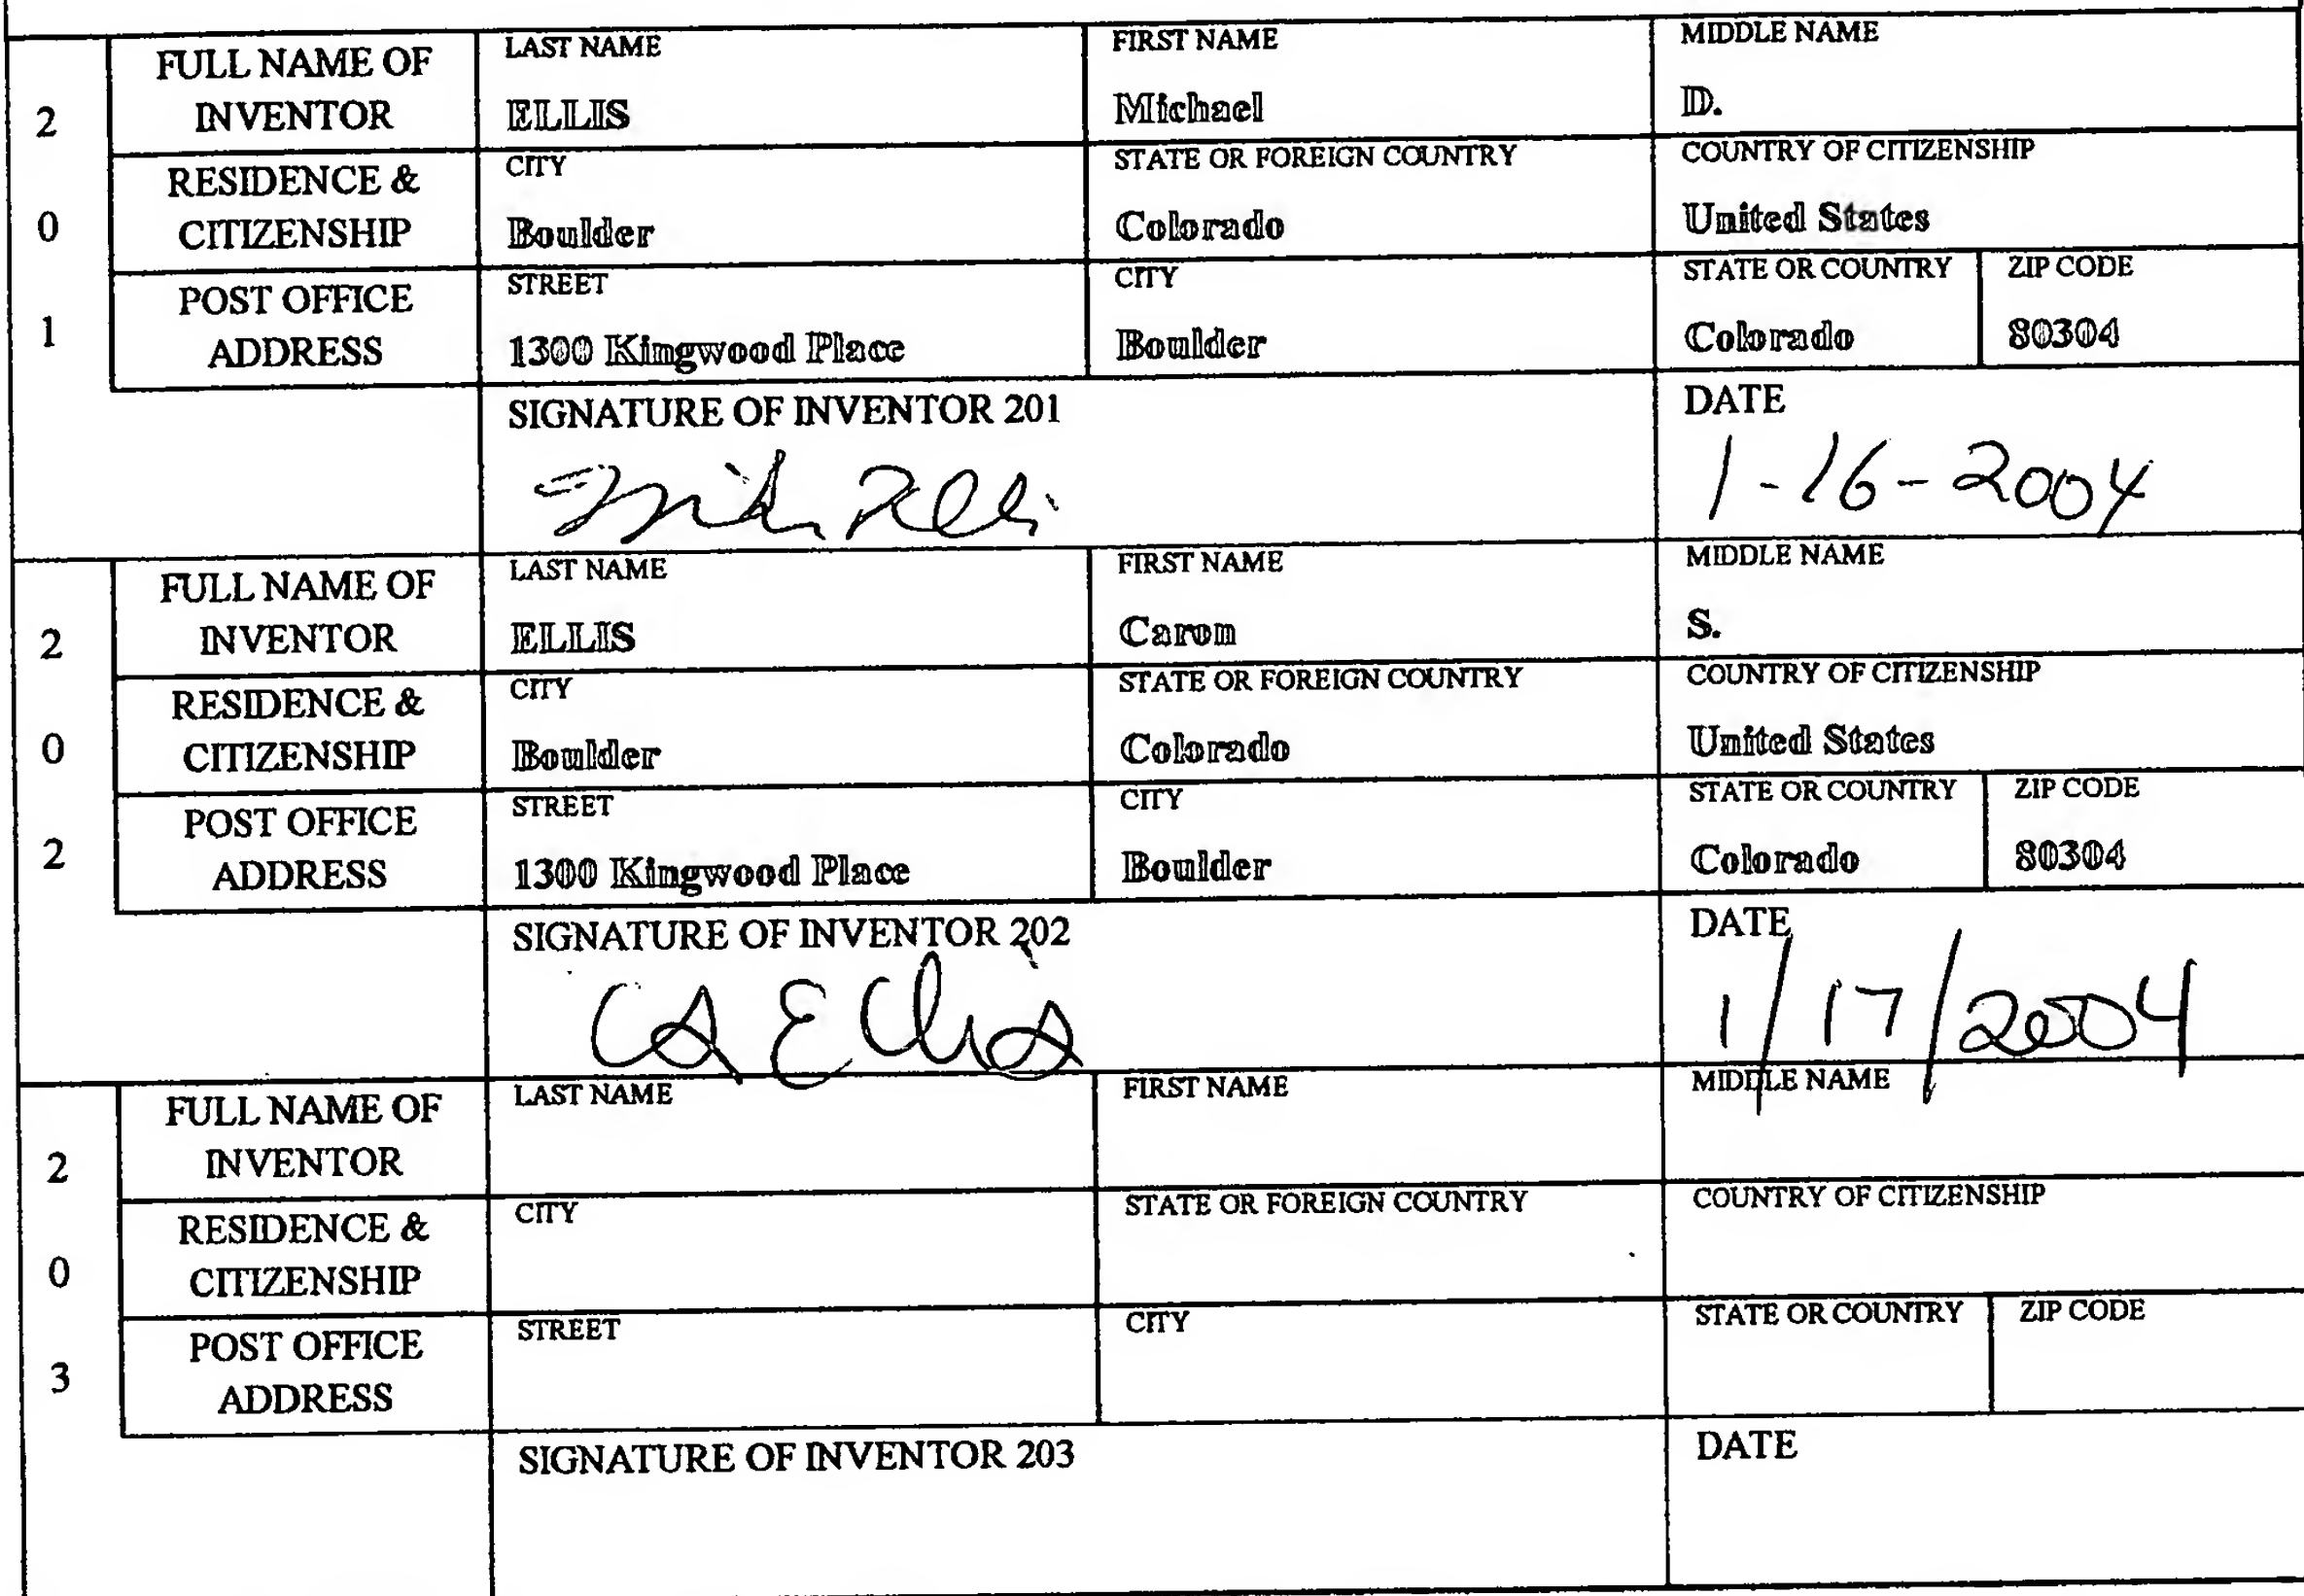 2 0 1
FULL NAME OF INVENTOR
LAST NAME
ELLIS
FIRST NAME
Michael
MIDDLE NAME
D.
RESIDENCE & CITIZENSHIP
CITY
Boulder
STATE OR FOREIGN COUNTRY
Colorado
COUNTRY OF CITIZENSHIP
United States
POST OFFICE ADDRESS
STREET
1300 Kingwood Place
CITY
Boulder
STATE OR COUNTRY
Colorado
ZIP CODE
80304
SIGNATURE OF INVENTOR 201
Mike Ellis
DATE
1-16-2004
2 0 2
FULL NAME OF INVENTOR
LAST NAME
ELLIS
FIRST NAME
Caron
MIDDLE NAME
S.
RESIDENCE & CITIZENSHIP
CITY
Boulder
STATE OR FOREIGN COUNTRY
Colorado
COUNTRY OF CITIZENSHIP
United States
POST OFFICE ADDRESS
STREET
1300 Kingwood Place
CITY
Boulder
STATE OR COUNTRY
Colorado
ZIP CODE
80304
SIGNATURE OF INVENTOR 202
CS Ellis
DATE
1/17/2004
2 0 3
FULL NAME OF INVENTOR
LAST NAME
FIRST NAME
MIDDLE NAME
RESIDENCE & CITIZENSHIP
CITY
STATE OR FOREIGN COUNTRY
COUNTRY OF CITIZENSHIP
POST OFFICE ADDRESS
STREET
CITY
STATE OR COUNTRY
ZIP CODE
SIGNATURE OF INVENTOR 203
DATE